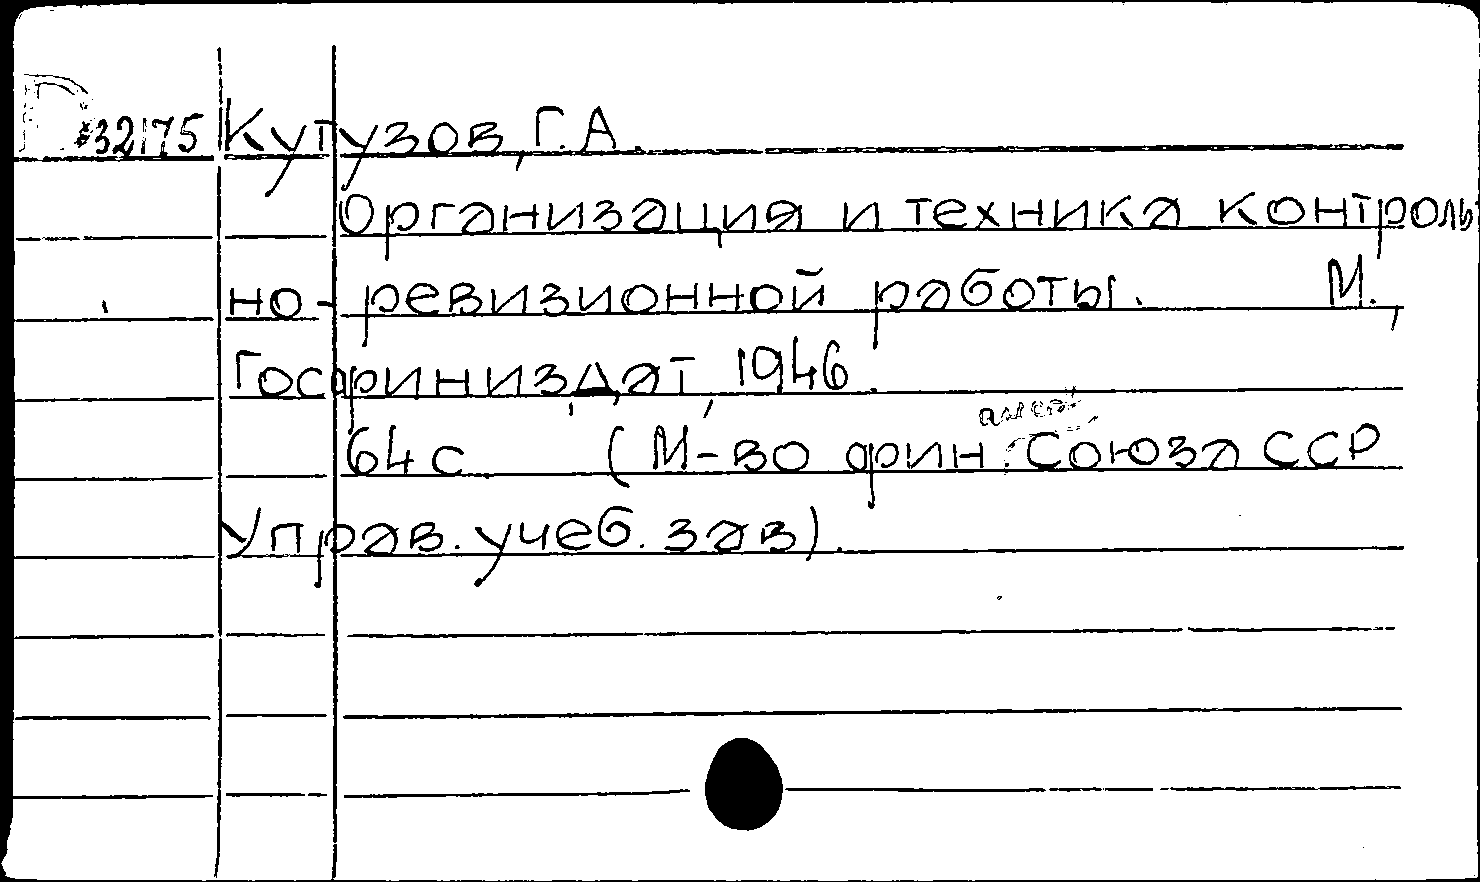 32175 Кутузов, Г.А.
Организация и техника контроль
но-ревизионной работы. М.,
Госфиниздат, 1946.
64 с. (М-во фин. Союза ССР
Управ. учеб. зав).